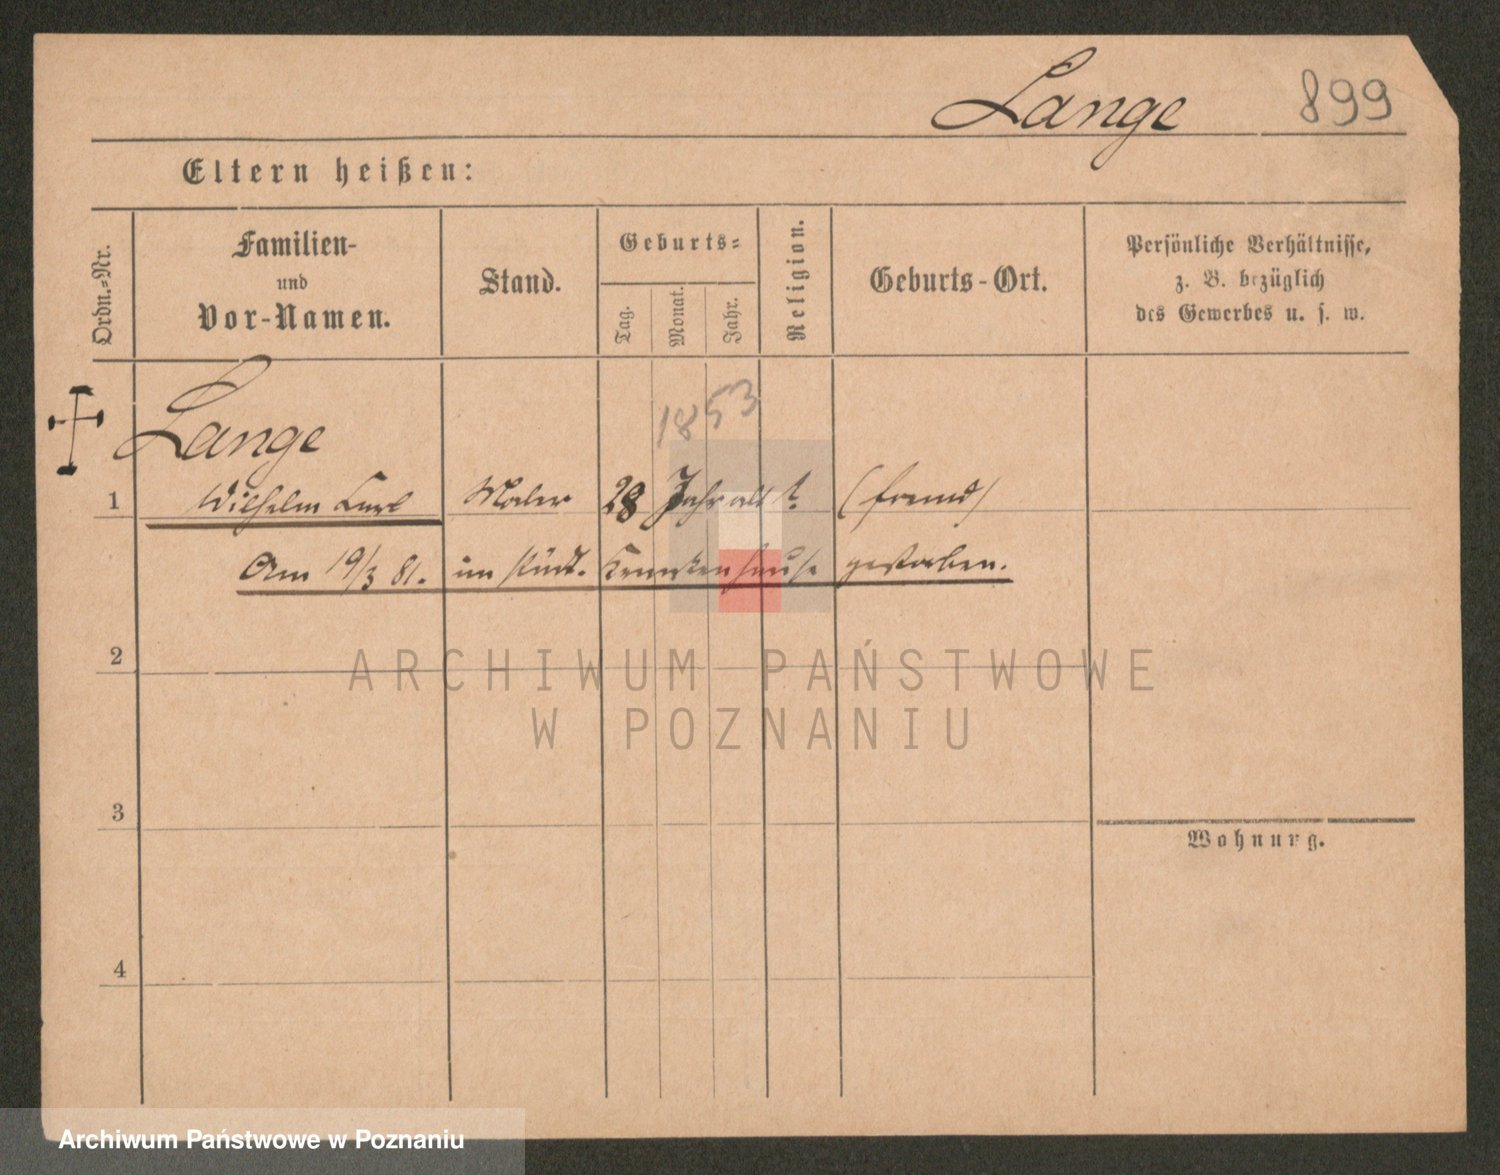 Lange 899
Eltern heißen:
Ordn.-Nr.
Familien-
und
Vor-Namen.
Stand.
Geburts-
Tag.
Monat.
Jahr.
Religion.
Geburts-Ort.
Persönliche Verhältnisse,
z. B. bezüglich
des Gewerbes u. s. w.
1853
Lange
1 Wilhelm Carl Maler 28 Jahr alt ? (fremd)
Am 19/3 81. im städt. Krankenhause gestorben.
2
3
Wohnung.
4
ARCHIWUM PAŃSTWOWE
W POZNANIU
Archiwum Państwowe w Poznaniu